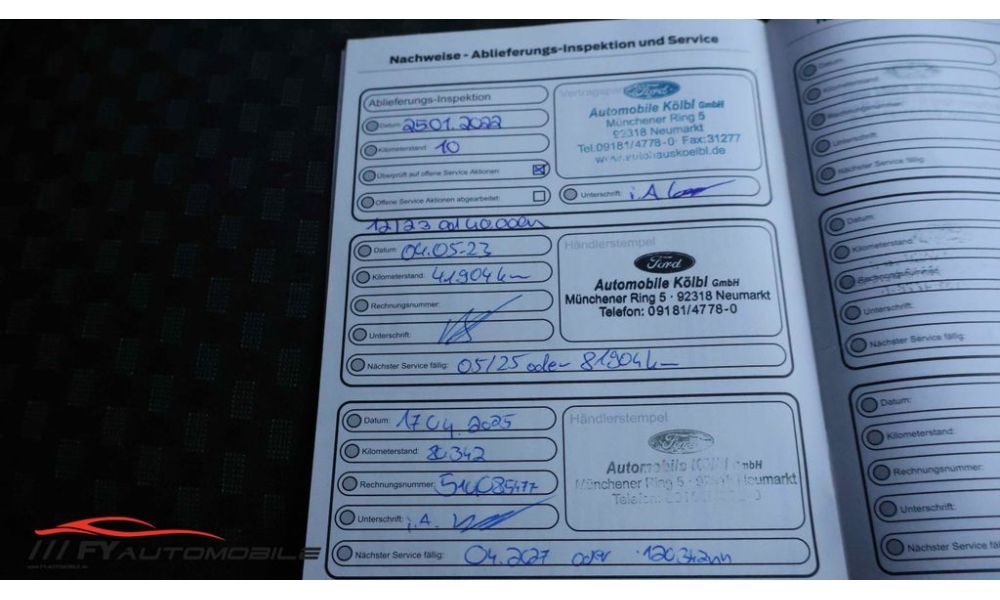 Nachweise - Ablieferungs-Inspektion und Service
Ablieferungs-Inspektion
Datum: 25.01.2022
Kilometerstand: 10
Überprüft auf offene Service Aktionen:
Offene Service Aktionen abgearbeitet:
Vertragspar
Ford
Automobile Kölbl GmbH
Münchener Ring 5
92318 Neumarkt
Tel.09181/4778-0 Fax:31277
www.autohauskoelbl.de
Unterschrift: i.A
12/23 od 40.000km
Datum: 04.05.23
Kilometerstand: 41904 km
Rechnungsnummer:
Unterschrift:
Händlerstempel
Ford
Automobile Kölbl GmbH
Münchener Ring 5 · 92318 Neumarkt
Telefon: 09181/4778-0
Nächster Service fällig: 05/25 oder 81904 km
Datum: 17.04.2025
Kilometerstand: 80342
Rechnungsnummer:
Unterschrift: i.A.
Händlerstempel
Ford
Automobile Kölbl GmbH
Münchener Ring 5 - 92318 Neumarkt
Telefon:
Nächster Service fällig: 04.2027 oder 120.342km
Datum:
Kilometerstand:
Rechnungsnummer:
Unterschrift:
Nächster Service fällig:
Datum:
Kilometerstand:
Rechnungsnummer:
Unterschrift:
Nächster Service fällig:
Datum:
Kilometerstand:
Rechnungsnummer:
Unterschrift:
Nächster Service fäl
/// FY AUTOMOBILE
www.FY-AUTOMOBILE.de